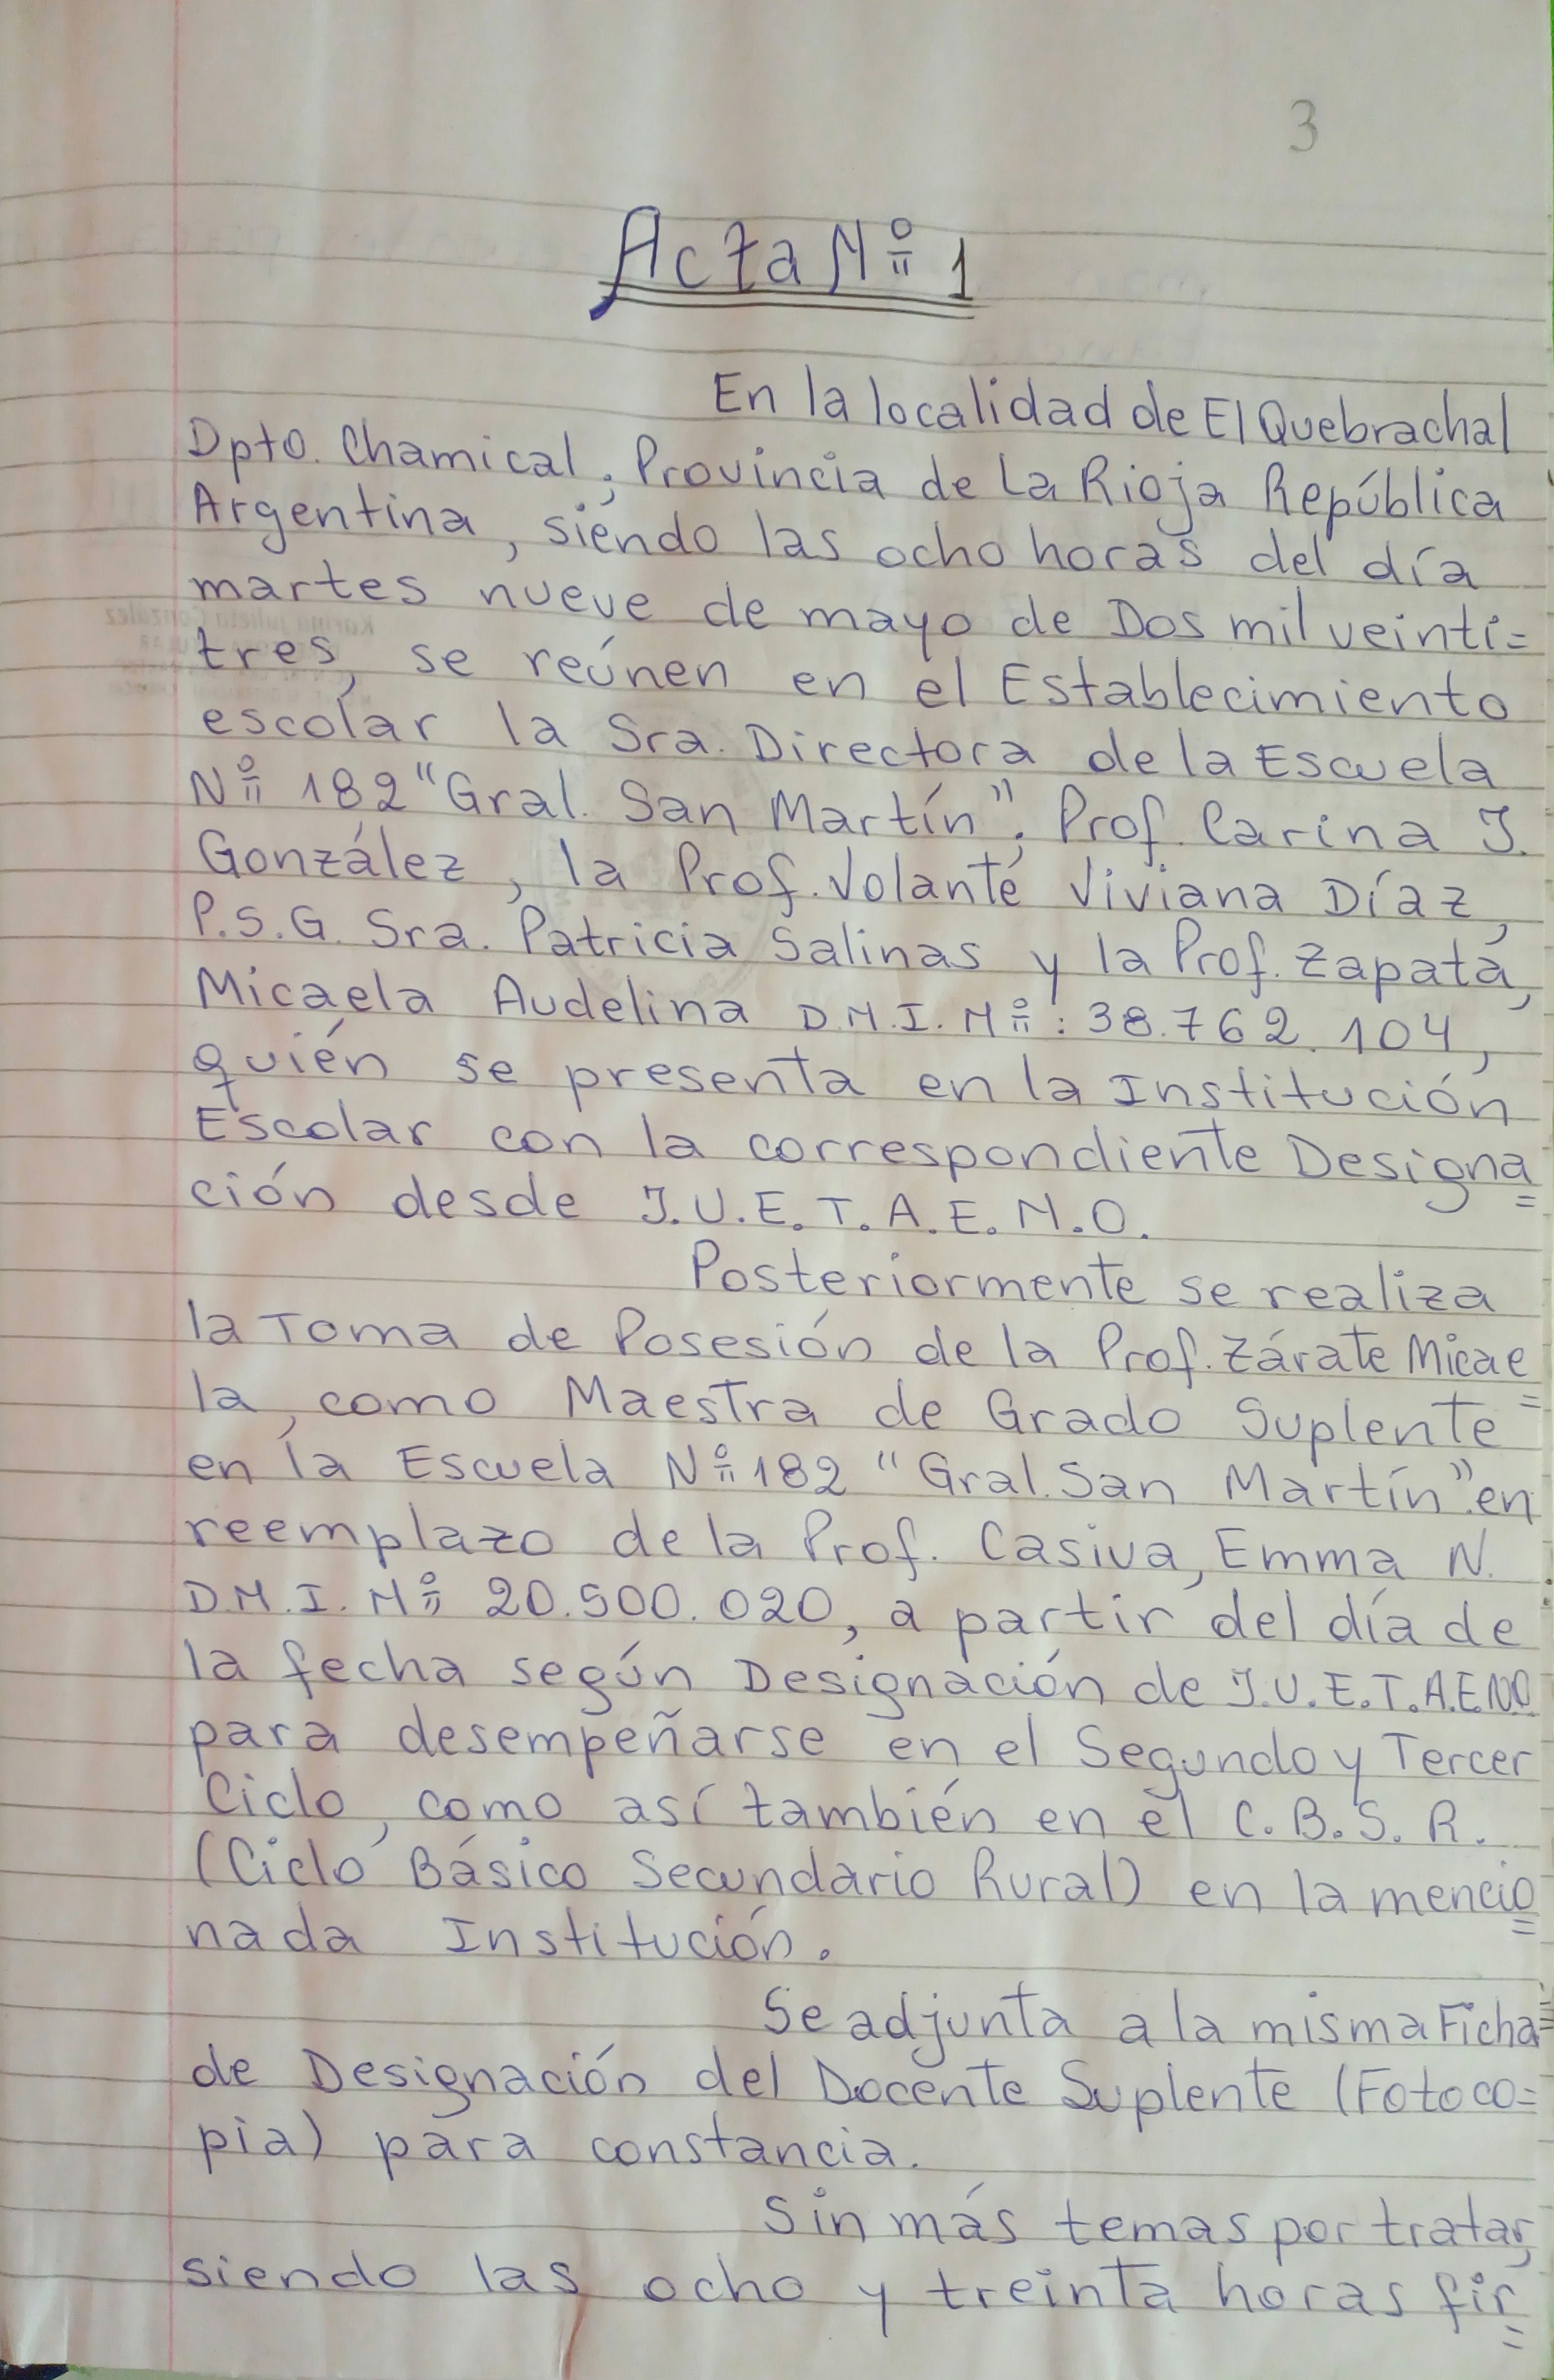 3
Acta Nº 1
En la localidad de El Quebrachal
Dpto. Chamical, Provincia de La Rioja República
Argentina, siendo las ocho horas del día
martes nueve de mayo de Dos mil veinti=
tres, se reúnen en el Establecimiento
escolar la Sra. Directora de la Escuela
Nº 182 "Gral. San Martín", Prof. Carina J.
González, la Prof. Volante Viviana Díaz,
P.S.G. Sra. Patricia Salinas y la Prof. Zapata,
Micaela Audelina D.N.I. Nº: 38.762.104,
quién se presenta en la Institución
Escolar con la correspondiente Designa=
ción desde J.U.E.T.A.E.N.O.
Posteriormente se realiza
la Toma de Posesión de la Prof. Zárate Micae=
la, como Maestra de Grado Suplente
en la Escuela Nº 182 "Gral. San Martín" en
reemplazo de la Prof. Casiva, Emma N.
D.N.I. Nº 20.500.020, a partir del día de
la fecha según Designación de J.U.E.T.A.E.N.O
para desempeñarse en el Segundo y Tercer
Ciclo, como así también en el C.B.S.R.
(Ciclo Básico Secundario Rural) en la mencio=
nada Institución.
Se adjunta a la misma Ficha
de Designación del Docente Suplente (Fotoco=
pia) para constancia.
Sin más temas por tratar,
siendo las ocho y treinta horas fir=